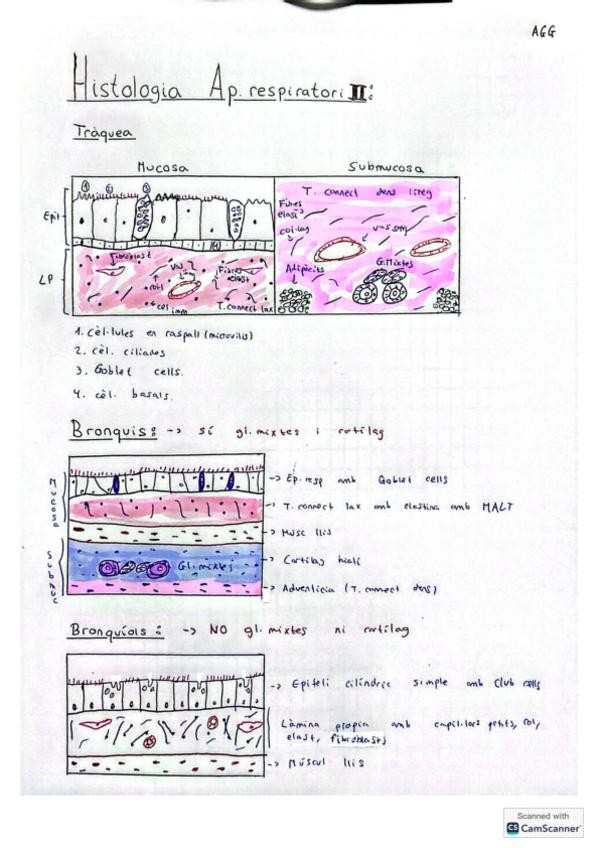 AGG
Histologia Ap. respiratori II:
Tràquea
Mucosa
Submucosa
Epit
LP
1
2
3
4
Fibroblast
col
cel imm
Fibres elast
T. connect lax
T. connect dens irreg
Fibres elast
col·lag
Adipòcits
G. Mixtes
1. cèl·lules en raspall (microvilis)
2. cèl. ciliades
3. Goblet cells.
4. cèl. basals.
Bronquis: -> sí gl. mixtes i cartílag
Mucosa
Submuc
Gl. mixtes
-> Ep. resp amb Goblet cells
-> T. connect lax amb elastina amb MALT
-> Musc llis
-> Cartílag hialí
-> Adventícia (T. connect dens)
Bronquíols: -> NO gl. mixtes ni cartílag
-> Epiteli cilíndric simple amb Club cells
Làmina propia amb capil·lars petits, col,
elast, fibroblasts
-> Múscul llis
Scanned with
CS CamScanner